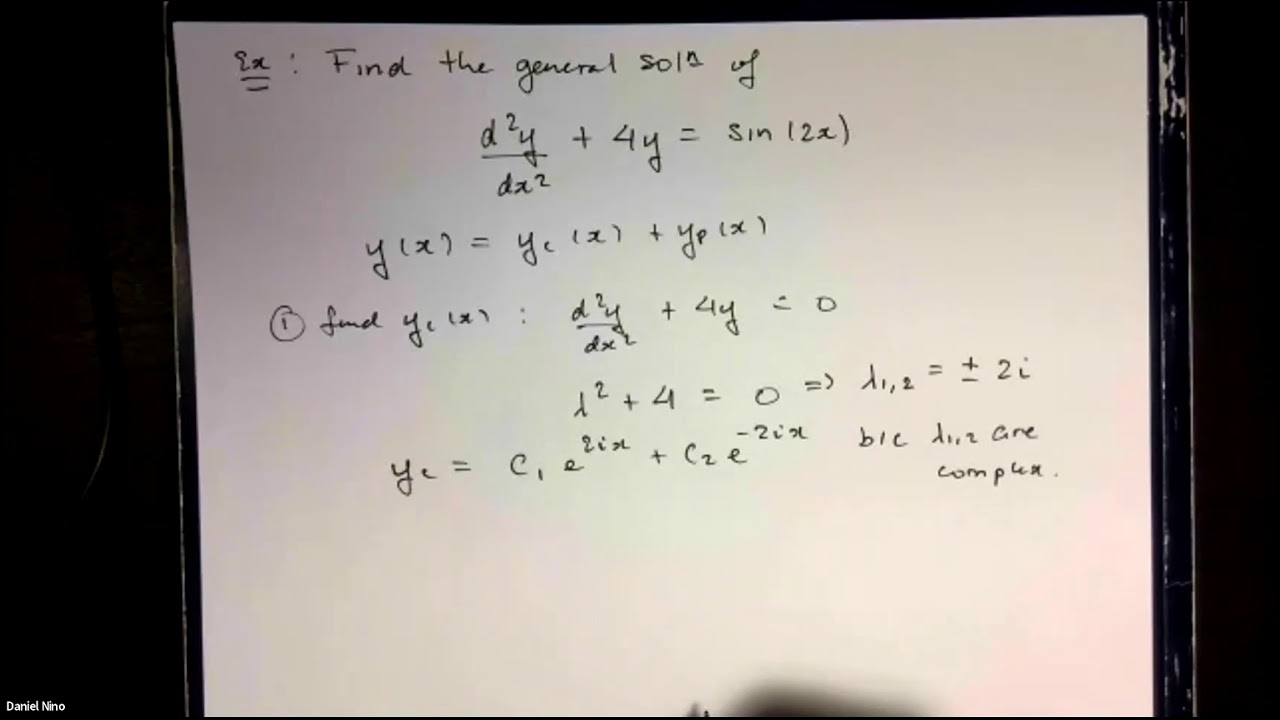 Ex : Find the general solⁿ of
d²y/dx² + 4y = sin(2x)
y(x) = y_c(x) + y_p(x)
① find y_c(x) : d²y/dx² + 4y = 0
λ² + 4 = 0 => λ₁,₂ = ± 2i
y_c = C₁ e^{2ix} + C₂ e^{-2ix} b/c λ₁,₂ are
complex.
Daniel Nino